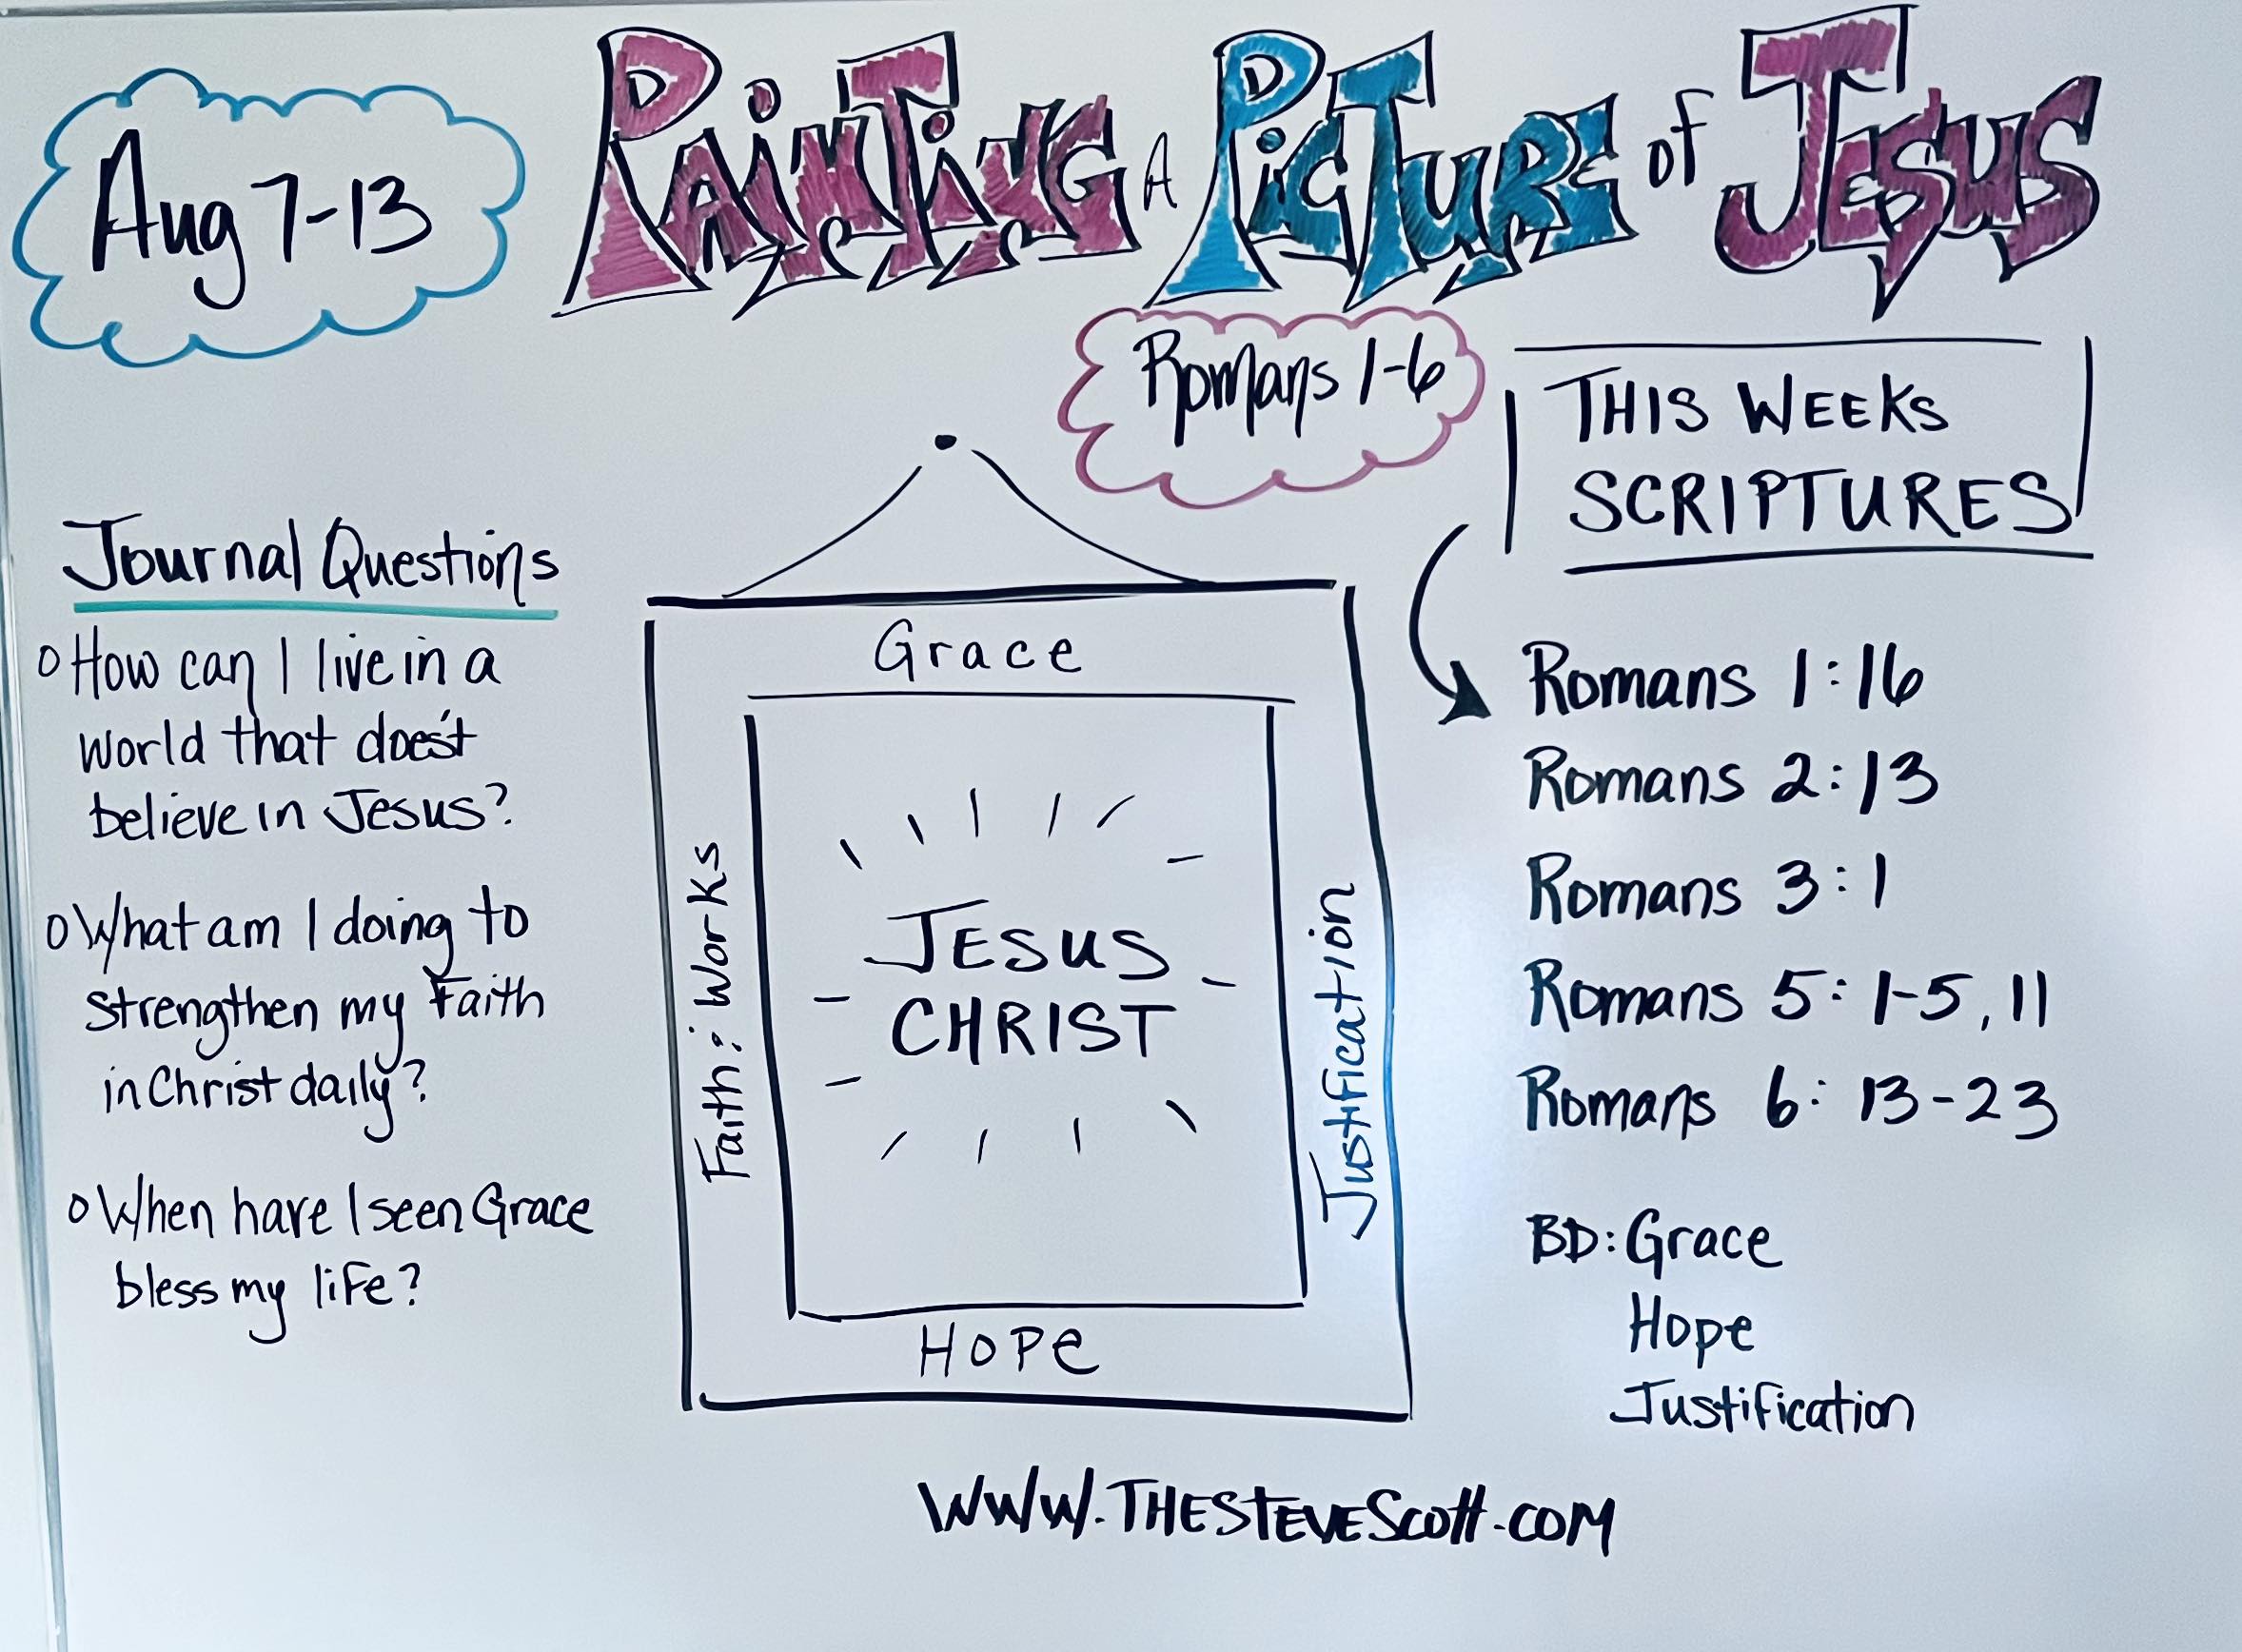 Aug 7-13
Painting A Picture of Jesus
Romans 1-6
THIS WEEKS
SCRIPTURES
Journal Questions
How can I live in a
world that does't
believe in Jesus?
What am I doing to
strengthen my Faith
in Christ daily?
When have I seen Grace
bless my life?
Grace
Faith: Works
JESUS
CHRIST
Justification
HOPE
Romans 1:16
Romans 2:13
Romans 3:1
Romans 5: 1-5, 11
Romans 6: 13-23
BD: Grace
Hope
Justification
WWW.THESTEVESCOTT.COM